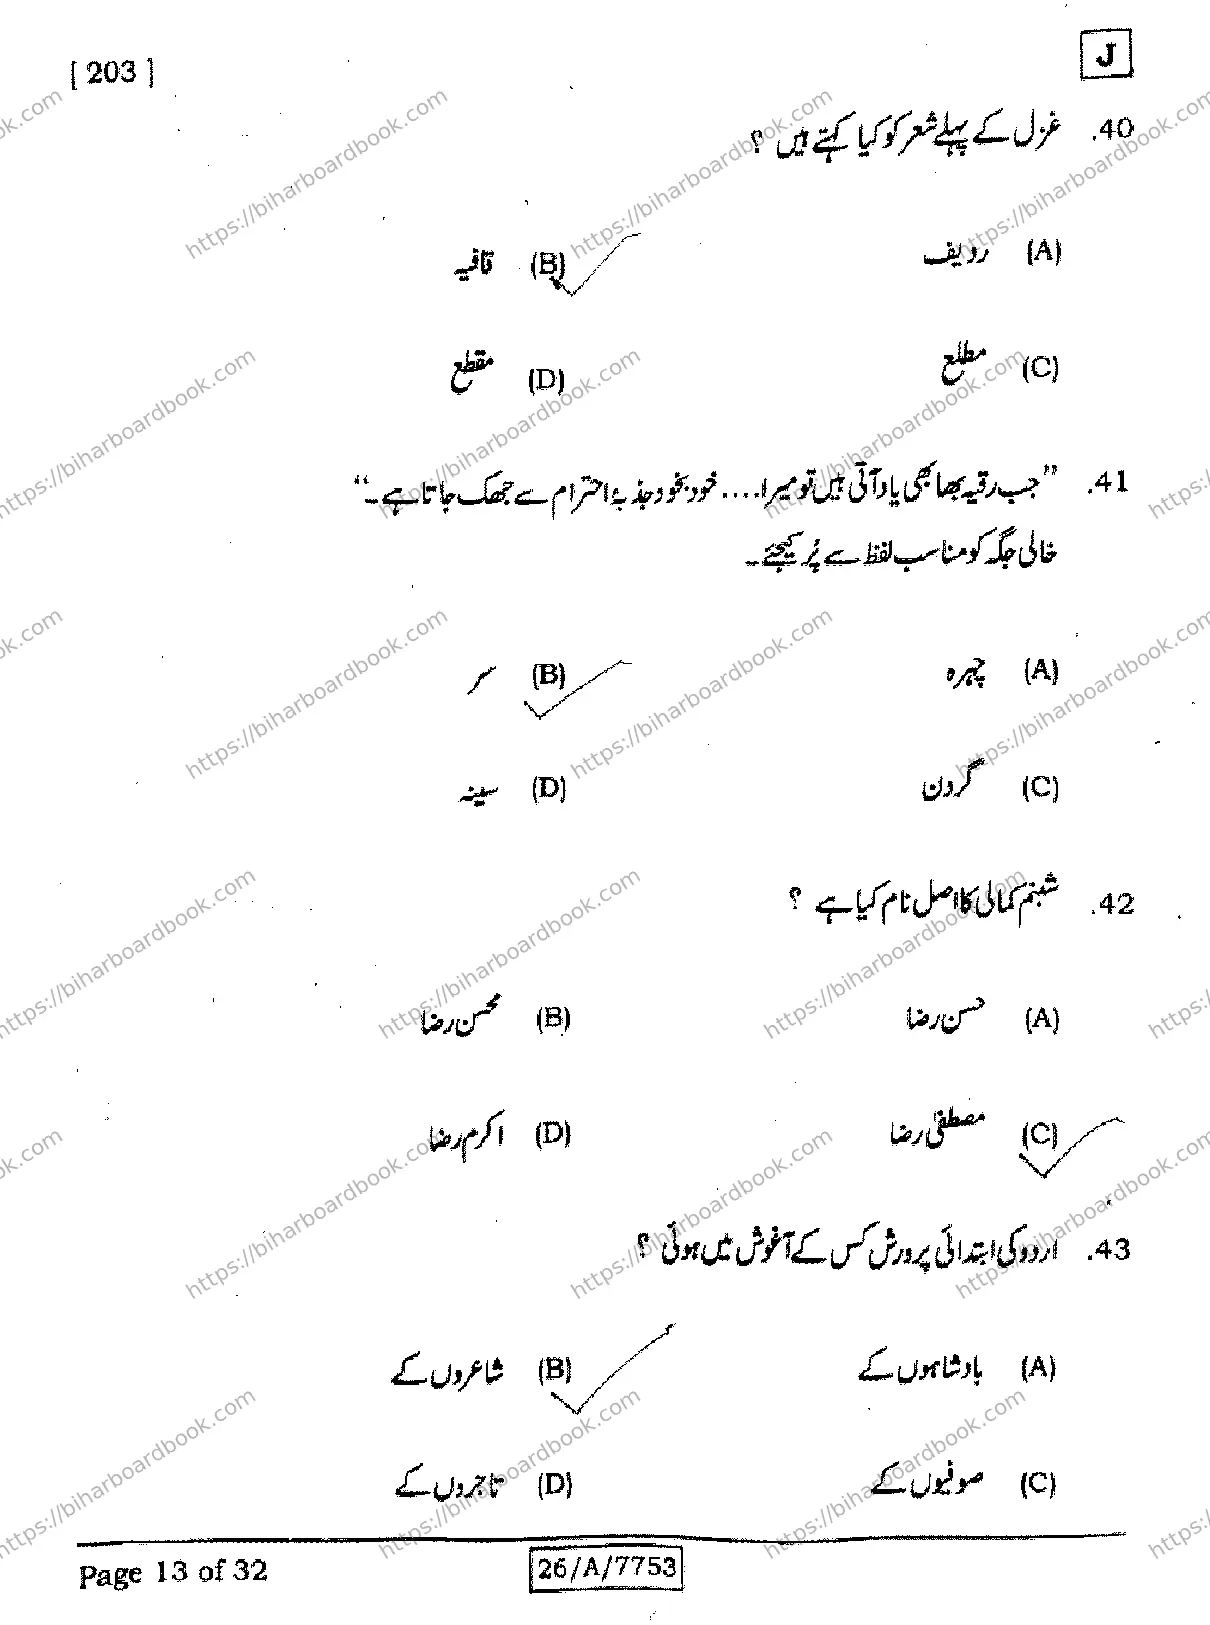 [ 203 ]
J
40. غزل کے پہلے شعر کو کیا کہتے ہیں ؟
(A) ردیف (B) قافیہ
(C) مطلع (D) مقطع
41. ”جب رقیہ بھابھی یاد آتی ہیں تو میرا .... خود بخود جذبۂ احترام سے جھک جاتا ہے۔“
خالی جگہ کو مناسب لفظ سے پُر کیجئے۔
(A) چہرہ (B) سر
(C) گردن (D) سینہ
42. شبنم کمالی کا اصل نام کیا ہے ؟
(A) حسن رضا (B) محسن رضا
(C) مصطفیٰ رضا (D) اکرم رضا
43. اردو کی ابتدائی پرورش کس کے آغوش میں ہوئی ؟
(A) بادشاہوں کے (B) شاعروں کے
(C) صوفیوں کے (D) تاجروں کے
Page 13 of 32
26/A/7753
https://biharboardbook.com